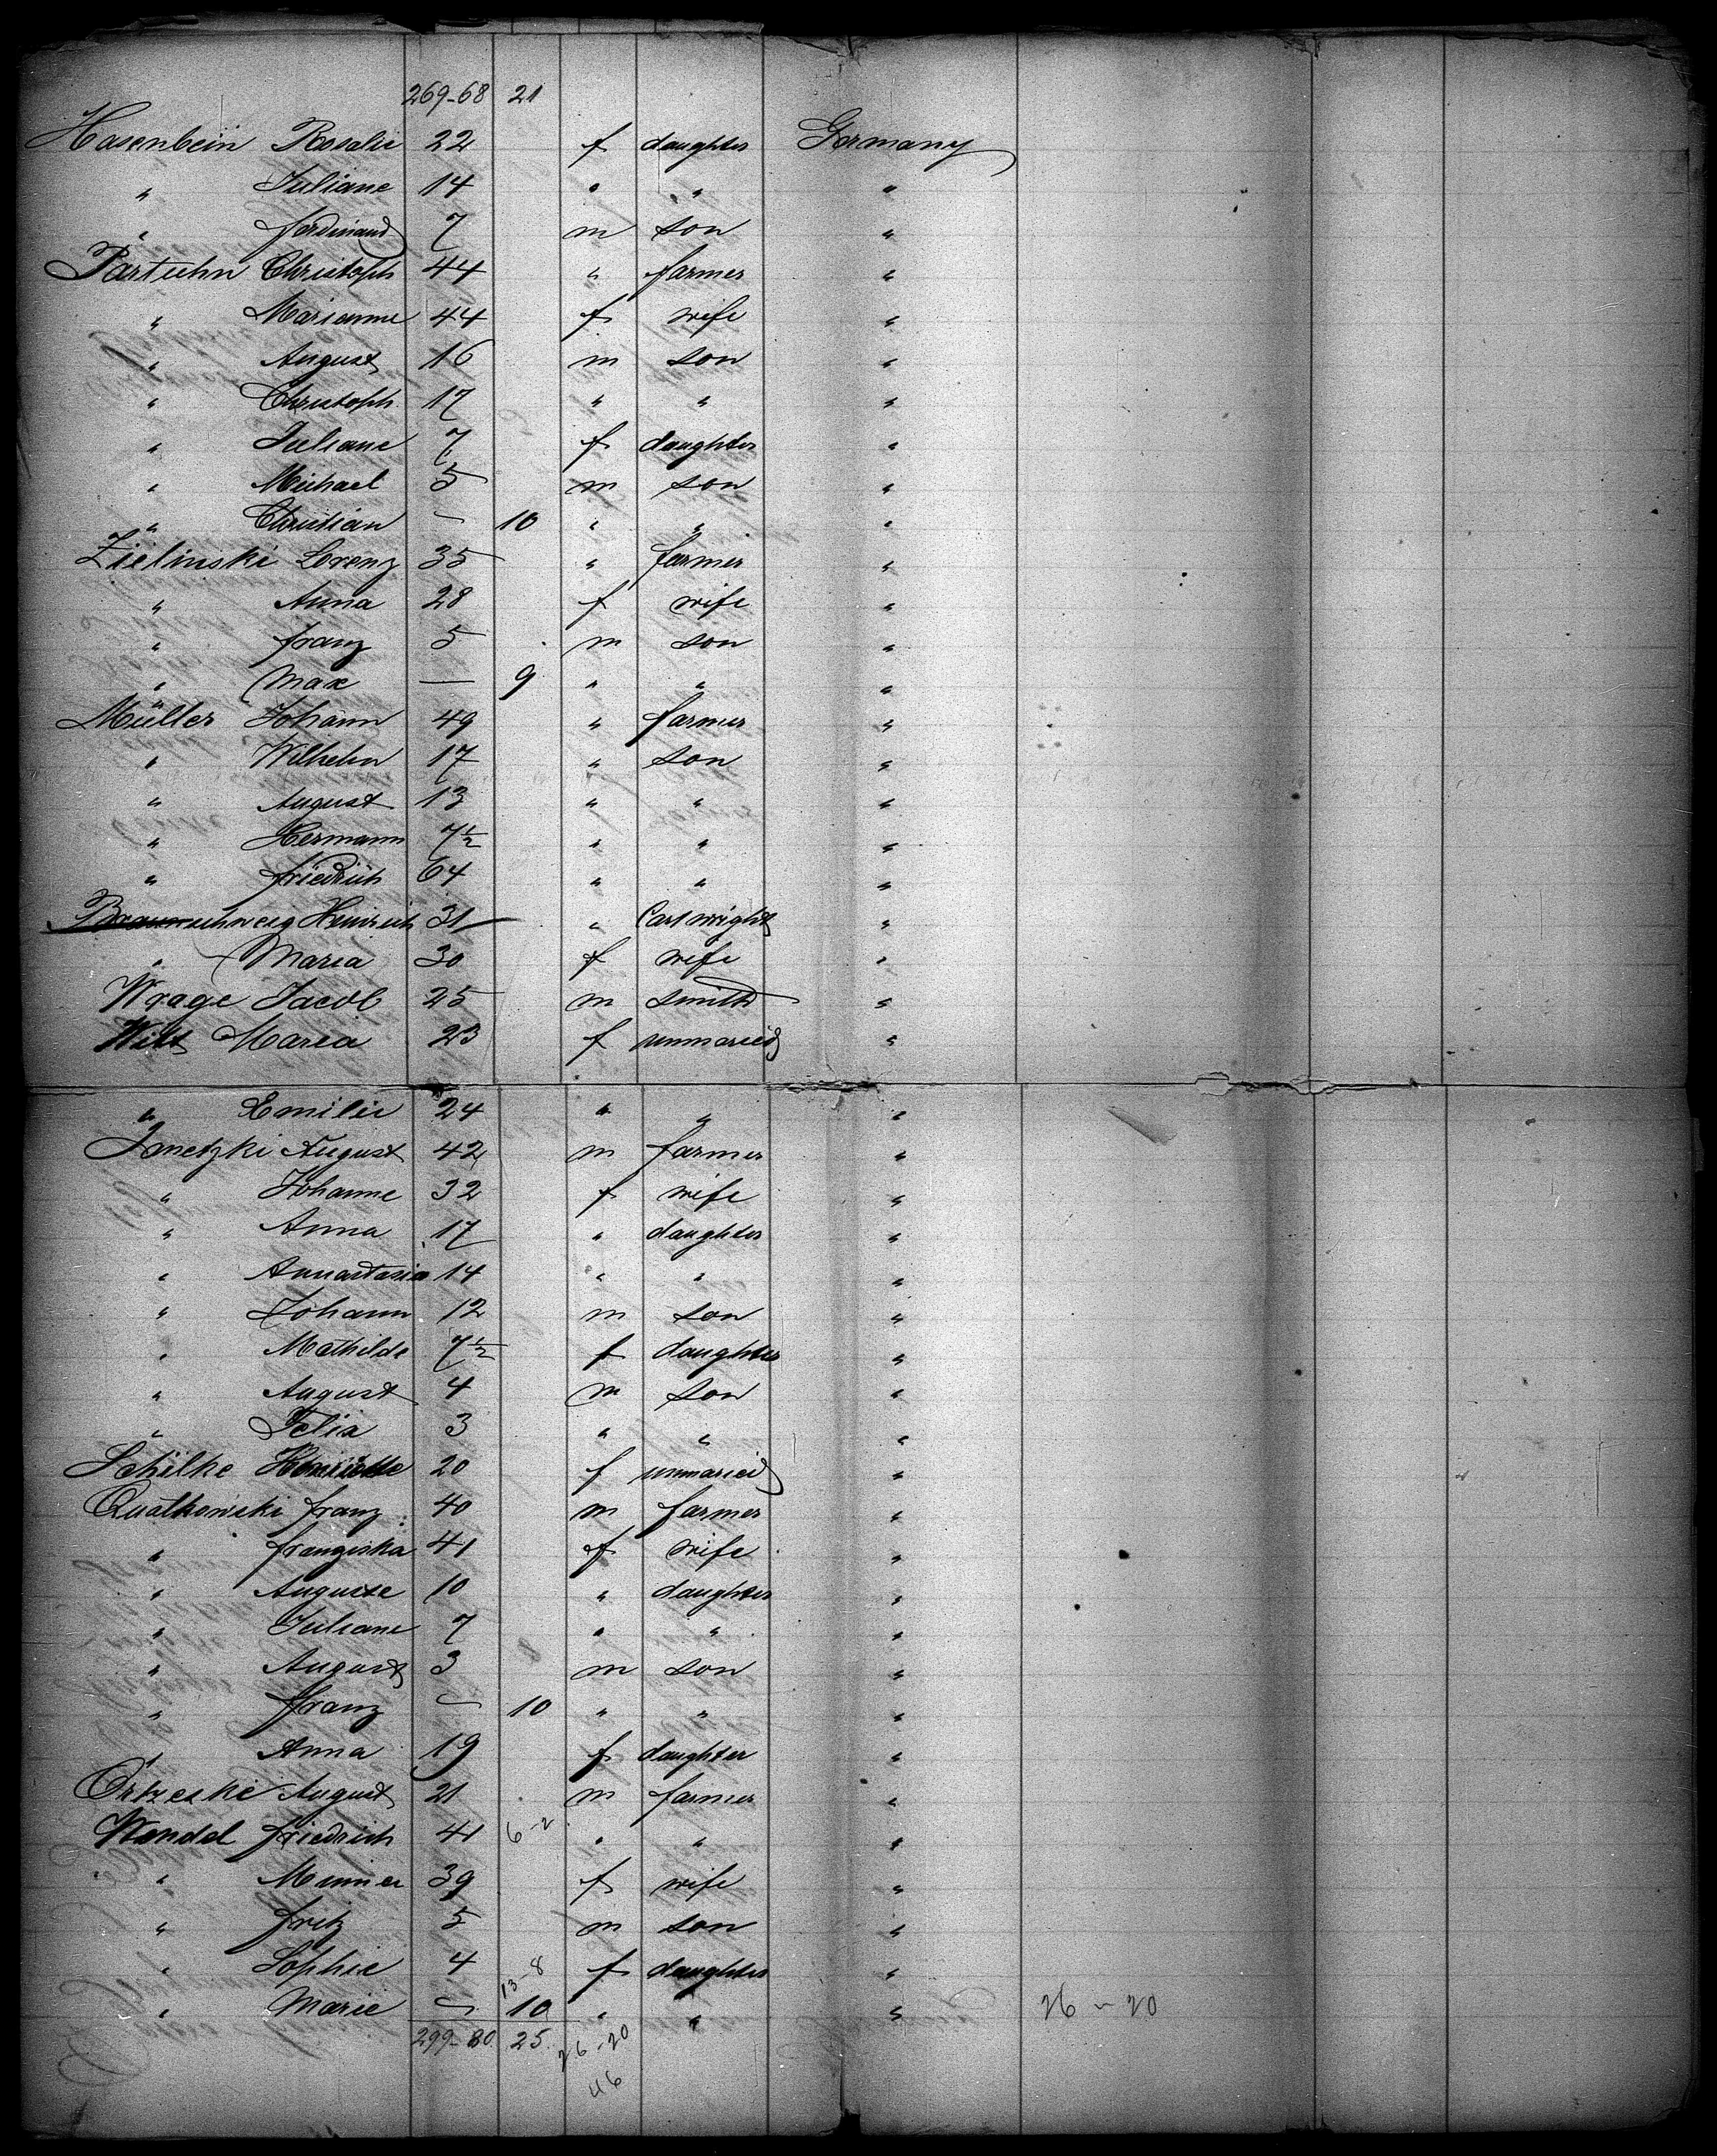 269-68 21
Hasenbein Rosalie 22 f daughter Germany
" Juliane 14 " " "
" Ferdinand 7 m son "
Partuhn Christoph 44 " farmer "
" Marianne 44 f wife "
" August 16 m son "
" Christoph 17 " " "
" Juliane 7 f daughter "
" Michael 5 m son "
" Christian — 10 " " "
Zielinski Lorenz 35 " farmer "
" Anna 28 f wife "
" Franz 5 m son "
" Max — 9 " " "
Müller Johann 49 " farmer "
" Wilhelm 17 " son "
" August 13 " " "
" Hermann 7½ " " "
" Friedrich 64 " " "
Braunschweig Heinrich 31 " Cartwright "
" Maria 30 f wife "
Wrage Jacob 25 m smith "
Witt Maria 23 f unmaried "
" Emilie 24 " " "
Janetzki August 42 m farmer "
" Johanne 32 f wife "
" Anna 17 " daughter "
" Annastasia 14 " " "
" Johann 12 m son "
" Mathilde 7½ f daughter "
" August 4 m son "
" Felix 3 " " "
Schilke Henriette 20 f unmaried "
Quatkowski Franz 40 m farmer "
" Franziska 41 f wife "
" Auguste 10 " daughter "
" Juliane 7 " " "
" August 3 m son "
" Franz — 10 " " "
" Anna 19 f daughter "
Orizeske August 21 m farmer "
Wendel Friedrich 41 6-2 " " "
" Minna 39 f wife "
" Fritz 5 m son "
" Sophie 4 f daughter "
13-8
" Marie — 10 " " " 26-20
299-80 25 26-20
46